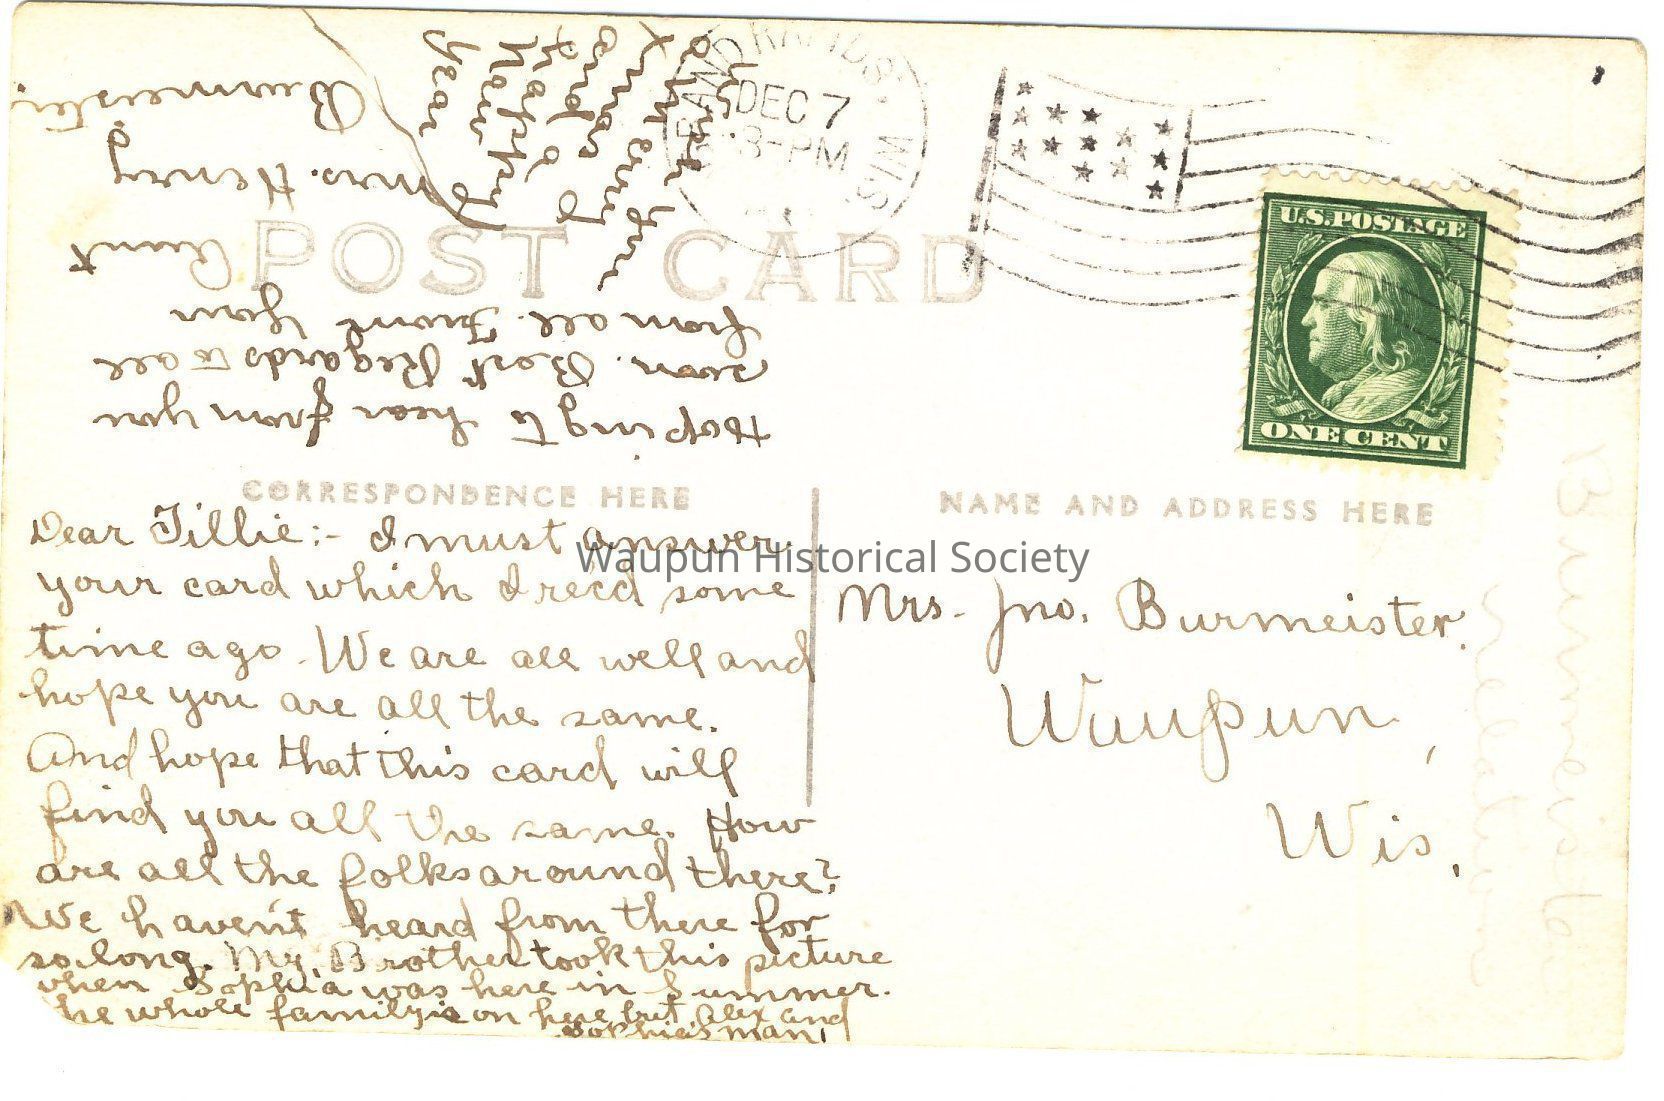 Dear Tillie:- I must answer
your card which I rec'd some
time ago. We are all well and
hope you are all the same.
And hope that this card will
find you all the same. How
are all the folks around there?
We haven't heard from there for
so long. My Brother took this picture
when Sophia was here in Summer.
he whole family is on here but Alex and
Sophia's man.
Hoping to hear from you
soon. Best Regards to all
from all. From Your
Aunt
Mrs. Henry
Burmeister.
you
Xmas
and a
Happy
New
Year
POST CARD
CORRESPONDENCE HERE
NAME AND ADDRESS HERE
GRAND RAPIDS. WIS
DEC 7
3-PM
U.S. POSTAGE
ONE CENT
Mrs. Jno. Burmeister.
Waupun,
Wis.
Burmeister
Waupun Historical Society